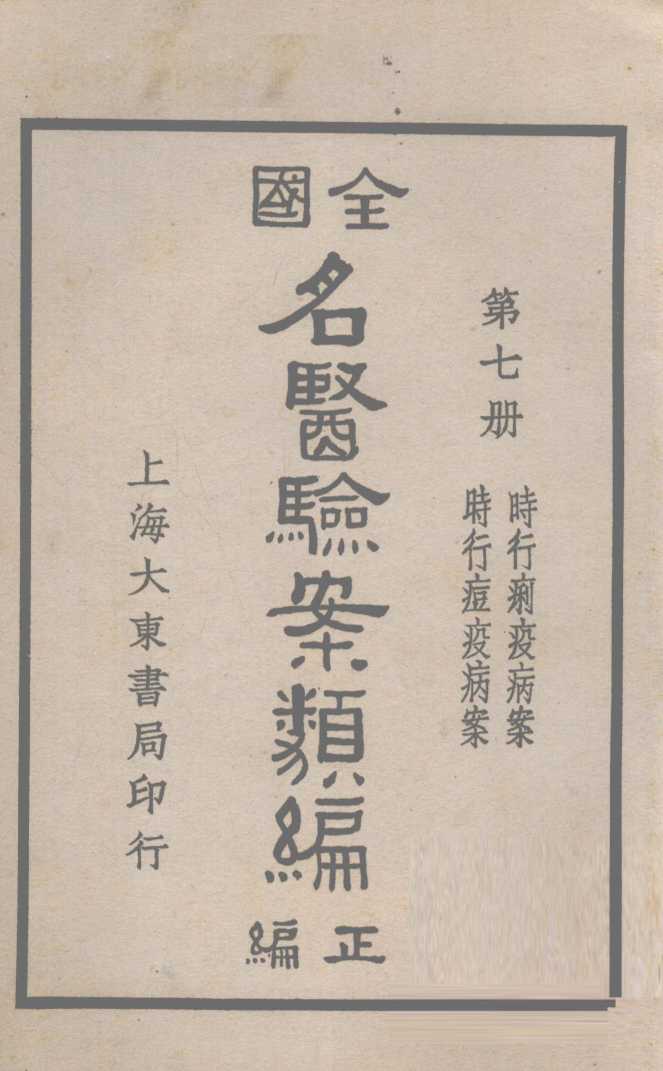 第七册
時行痢疫病案
時行痘疫病案
全國
名醫驗案類編
正編
上海大東書局印行